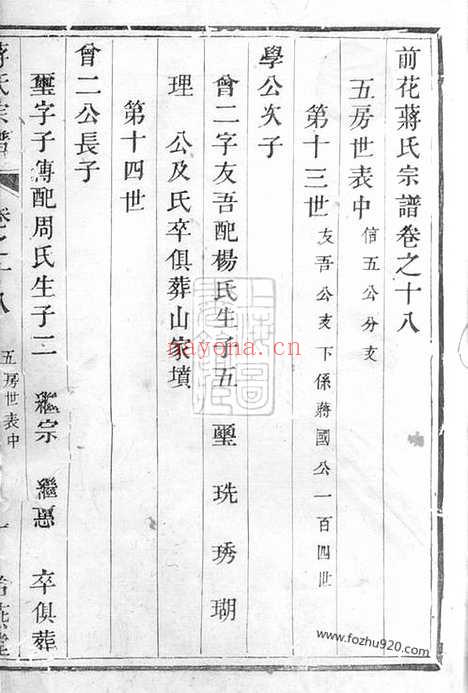 前花蔣氏宗譜卷之十八
五房世表中 信五公分支
第十三世 友吾公支下係蔣國公一百四世
學公次子
曾二字友吾配楊氏生子五 璽 珗 琇 瑚
理 公及氏卒俱葬山家墳
第十四世
曾二公長子
璽字子傳配周氏生子二 繼宗 繼愚 卒俱葬
蔣氏宗譜 卷之十八 五房世表中
nayona.cn
www.fozhu920.com